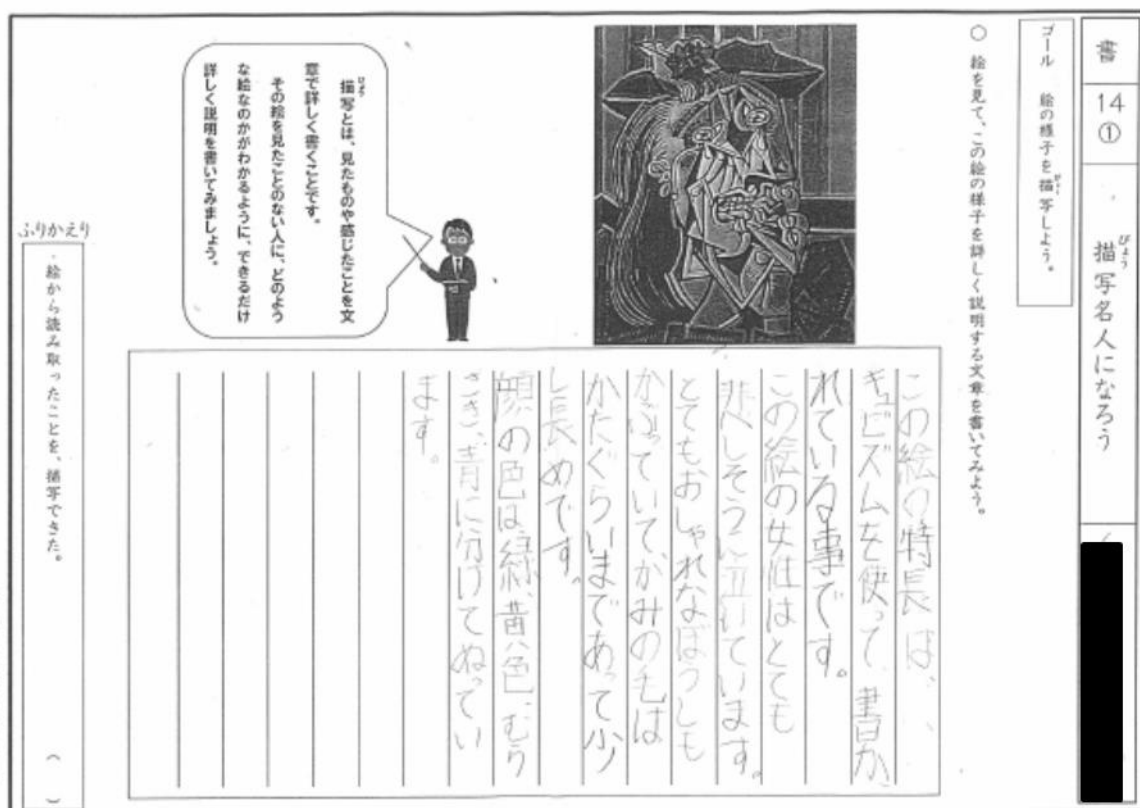 書
14
①
描写名人になろう
びょう
ゴール　絵の様子を描写しよう。
びょう
○　絵を見て、この絵の様子を詳しく説明する文章を書いてみよう。
描写とは、見たものや感じたことを文
びょう
章で詳しく書くことです。
その絵を見たことのない人に、どのよう
な絵なのかがわかるように、できるだけ
詳しく説明を書いてみましょう。
この絵の特長は、
キュビズムを使って、書か
れている事です。
この絵の女性はとても
悲しそうに泣けています。
とてもおしゃれなぼうしも
かぶっていて、かみの毛は
かたぐらいまであって少
し長めです。
顔の色は、緑、黄色、むら
さき、青に分けてぬってい
ます。
ふりかえり
・絵から読み取ったことを、描写できた。
（　）